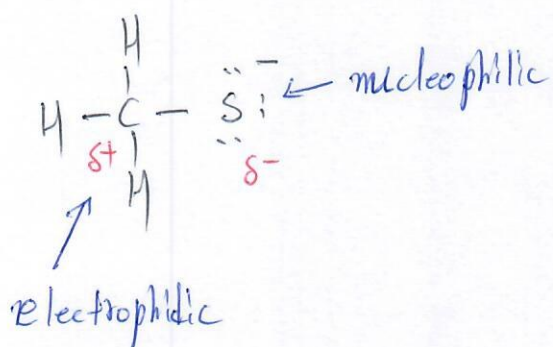 H
H - C - S: -
δ+ δ-
H
nucleophilic
electrophilic